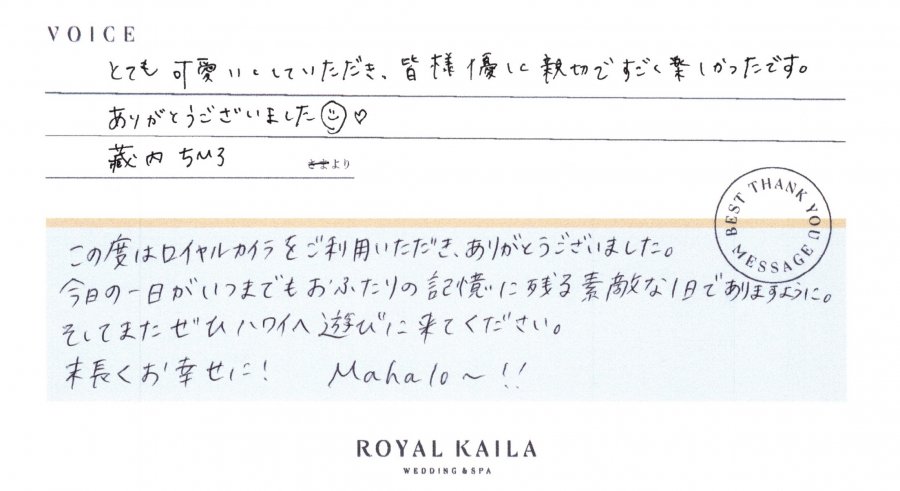 VOICE
とても可愛いくしていただき、皆様優しく親切ですごく楽しかったです。
ありがとうございました♡
蔵内ちひろ さまより
BEST THANK YOU MESSAGE
この度はロイヤルカイラをご利用いただき、ありがとうございました。
今日の一日がいつまでもおふたりの記憶に残る素敵な1日でありますように。
そしてまたぜひハワイへ遊びに来てください。
末長くお幸せに! Mahalo〜!!
ROYAL KAILA
WEDDING & SPA